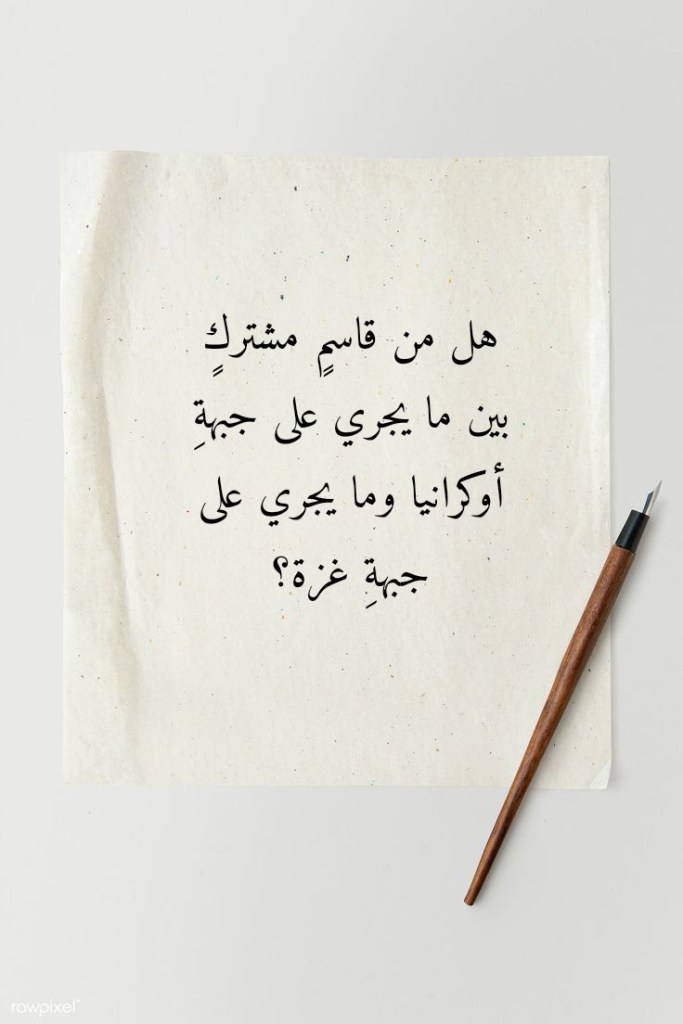 هل من قاسمٍ مشتركٍ
بين ما يجري على جبهةِ
أوكرانيا وما يجري على
جبهةِ غزة؟
rawpixel